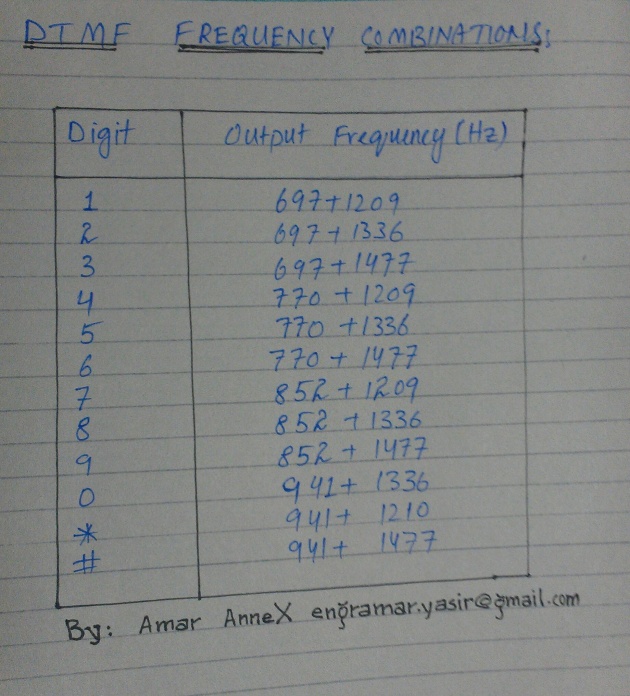 DTMF FREQUENCY COMBINATIONS:
Digit Output Frequency (Hz)
1 697+1209
2 697+1336
3 697+1477
4 770+1209
5 770+1336
6 770+1477
7 852+1209
8 852+1336
9 852+1477
0 941+1336
* 941+1210
# 941+1477
By: Amar AnneX engramar.yasir@gmail.com